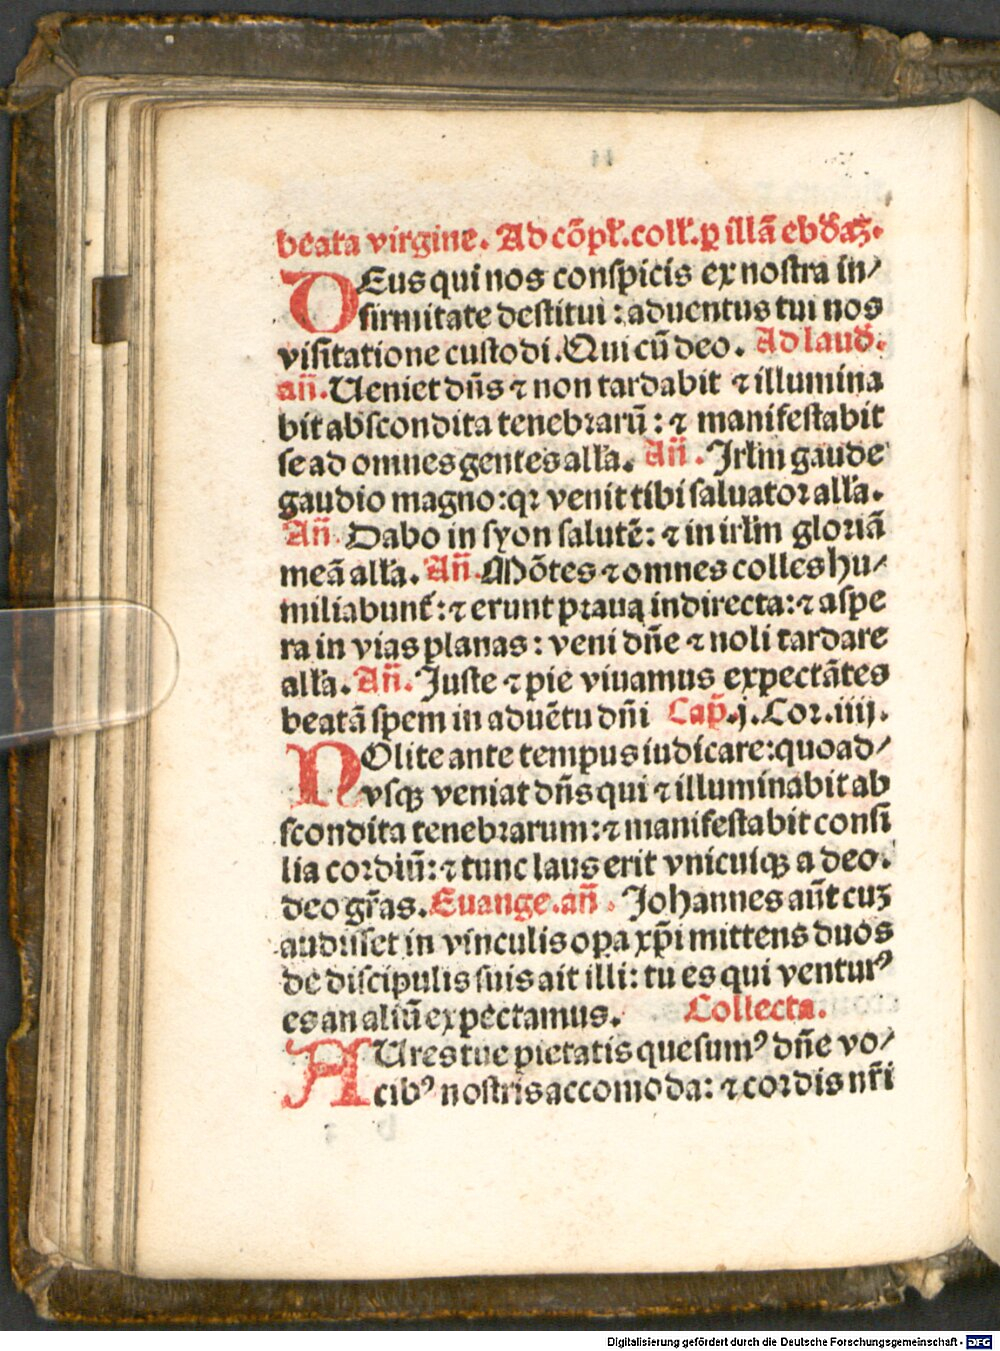 beata virgine. Ad cõpƚ. colƚ. ꝑ illã ebdaꝫ.
DEus qui nos conſpicis ex noſtra in/
firmitate deſtitui: aduentus tui nos
viſitatione cuſtodi. Qui cũ deo. Ad laud.
añ. Ueniet dñs ⁊ non tardabit ⁊ illumina
bit abſcondita tenebꝛarũ: ⁊ manifeſtabit
ſe ad omnes gentes alƚa. Añ. Jrƚm gaude
gaudio magno: qꝛ venit tibi ſaluatoꝛ alƚa.
Añ. Dabo in ſyon ſalutẽ: ⁊ in irƚm gloꝛiã
meã alƚa. Añ. Mõtes ⁊ omnes colles hu/
miliabunt᷑: ⁊ erunt pꝛaua indirecta: ⁊ aſpe
ra in vias planas: veni dñe ⁊ noli tardare
alƚa. Añ. Juſte ⁊ pie viuamus expectãtes
beatã ſpem in aduẽtu dñi Cap̃. j. Coꝛ. iiij.
NOlite ante tempus iudicare: quoad/
vſqꝫ veniat dñs qui ⁊ illuminabit ab
ſcondita tenebꝛarum: ⁊ manifeſtabit conſi
lia coꝛdiũ: ⁊ tunc laus erit vnicuiqꝫ a deo.
deo gr̃as. Euange. añ. Johannes aũt cuꝫ
audiſſet in vinculis opa xp̃i mittens duos
de diſcipulis ſuis ait illi: tu es qui venturꝰ
es an aliũ expectamus. Collecta.
AUres tue pietatis queſumꝰ dñe vo/
cibꝰ noſtris accomoda: ⁊ coꝛdis nr̃i
Digitalisierung gefördert durch die Deutsche Forschungsgemeinschaft - DFG